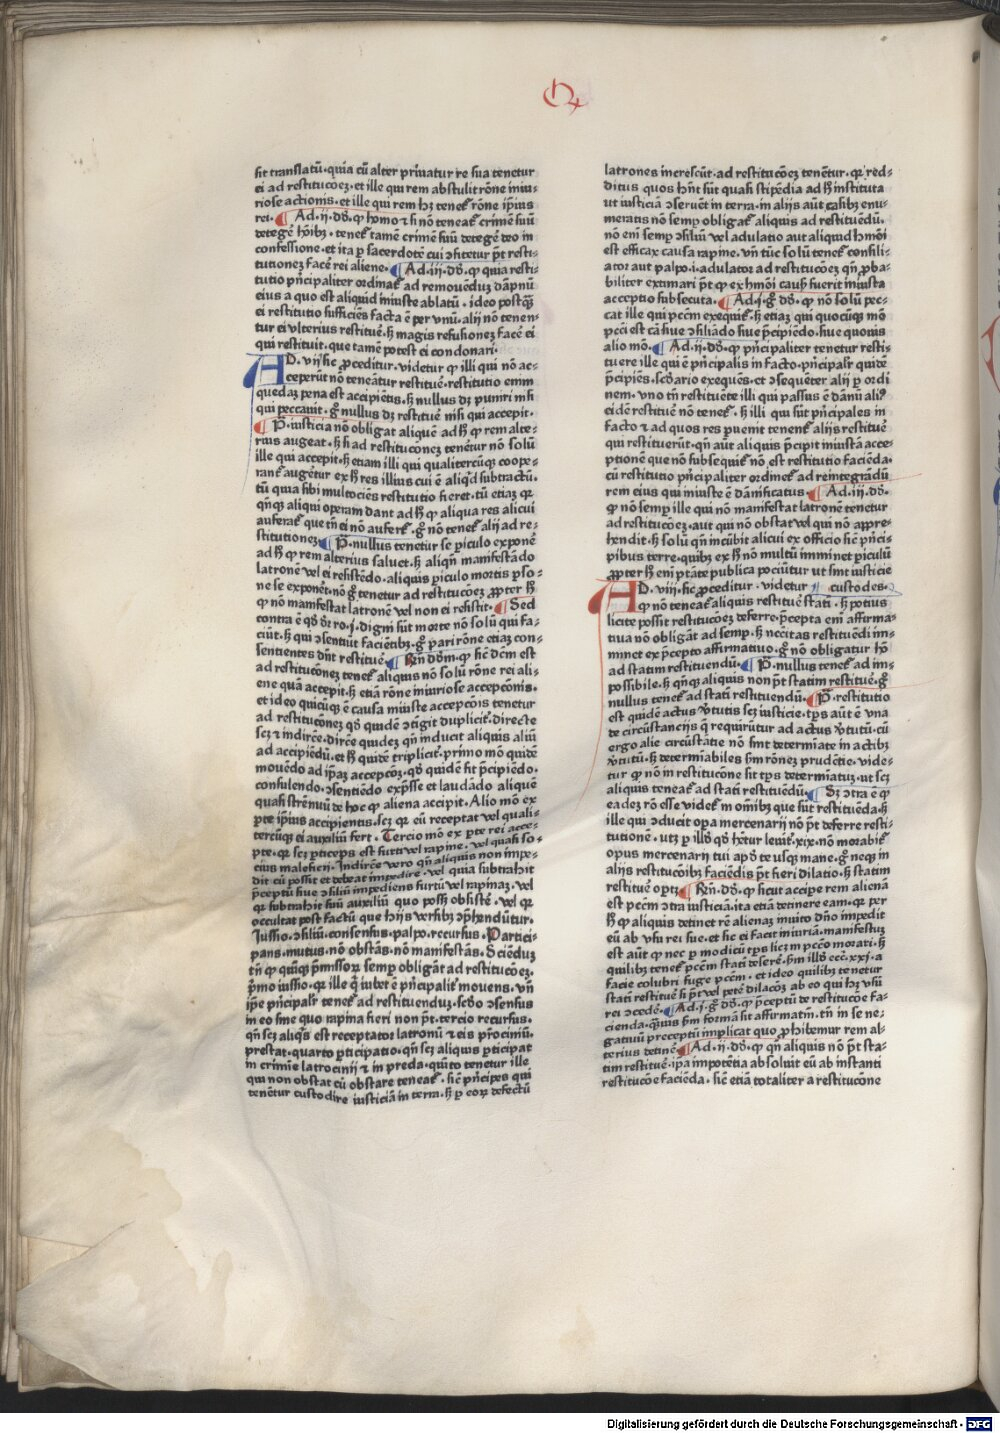 Q
sit translatū·quia cū alter priuatur re sua tenetur
ei ad restitucōez·et ille qui rem abstulit rōne iniu-
riose actionis·et ille qui rem hz tenet᷑ rōne ip̄ius
rei· Ad·ii·dō· ꝙ homo & si nō teneat᷑ crimē suū
detegē hōibꝫ· tenet᷑ tamē crimē suū detegē deo in
confessione·et ita p sacerdotē cui ɔfitetur pt̄ resti-
tutionez facē rei aliene· Ad·iii·dō· ꝙ quia resti-
tutio pn̄cipaliter ordinat᷑ ad remouēduz dāpnū
eius a quo est aliquid iniuste ablatū· ideo postqȝ
ei restitutio sufficiēs facta ē per vnū·alij nō tenen-
tur ei vlterius restituē·sꝫ magis refusionez facē ei
qui restituit·que tamē potest ei condonari·
AD·vij·sic ꝓceditur·videtur ꝙ illi qui nō ac-
ceperūt nō teneātur restituē·restitutio enim
quedaz pena est accipiētis·sꝫ nullus dz puniri nisi
qui peccauit·gͦ nullus dz restituē nisi qui accipit·
P̄·iusticia nō obligat aliquē ad hꝫ ꝙ rem alte-
rius augeat·sꝫ si ad restitucōnez tenētur nō solū
ille qui accepit·sꝫ etiam illi qui qualitercūqȝ coope-
rant᷑ augētur ex hꝫ res illius cui ē aliqd subtractū·
tū quia sibi multociēs restitutio fieret·tū etiaz qꝛ
qn̄qȝ aliqui operam dant ad hꝫ ꝙ aliqua res alicui
auferat᷑ que tn̄ ei nō aufert᷑·gͦ nō tenet᷑ alij ad re-
stitutionez P̄·nullus tenetur se piculo exponē
ad hꝫ ꝙ rem alterius saluet·sꝫ aliqn̄ manifestādo
latronē vel ei resistēdo·aliquis piculo mortis p̄so-
ne se exponēt·nō gͦ tenetur ad restitucōez ꝓpter hꝫ
ꝙ nō manifestat latronē vel non ei resistit· Sed
contra ē qd dꝛ ro·j·digni sūt morte nō solū qui fa-
ciūt·sꝫ qui ɔsentiūt faciētibꝫ·gͦ pari rōne etiaz con-
sentientes dn̄t restituē· Rn̄ dōm·ꝙ sic̄ dc̄m est
ad restitucōnez tenet᷑ aliquis nō solū rōne rei ali-
ene quā accepit·sꝫ etiā rōne iniuriose accepcōnis·
et ideo quicūqȝ ē causa iniuste accepcōis tenetur
ad restitucōnez qd quidē ɔtigit duplicit᷑·directe
scꝫ & indirēe·dirēe quidez qn̄ inducit aliquis aliū
ad accipiēdū·et hꝫ quidē triplicit᷑·primo mō quidē
mouēdo ad ip̄aꝫ accepcōꝫ·qd quidē fit p̄cipiēdo·
consulendo·ɔsentiēdo exp̄sse et laudādo aliquē
quasi strēnuū de hoc ꝙ aliena accipit·Alio mō ex
pte ip̄ius accipientis·scꝫ qꝛ eū receptat vel quali-
tercūqȝ ei auxiliū fert· Tercio mō ex pte rei acce-
pte·qꝛ scꝫ pticeps est furti vel rapine·vel quasi so-
cius maleficii·Indirēe vero qn̄ aliquis non impe-
dit cū possit et debeat impedire·vel quia subtrahit
p̄ceptū siue ɔsiliū impediens furtū vel rapinaꝫ·vel
qꝛ subtrahit suū auxiliū quo possꝫ obsistē·vel qꝛ
occultat post factū que hijs versibꝫ ɔp̄hendūtur·
Iussio·ɔsiliū·consensus·palpo·recursus·Partici-
pans·mutus·nō obstās·nō manifestās·Sciēduꝫ
tn̄ ꝙ quīqȝ p̄missoꝝ semp obligāt ad restitucōez·
p̄mo iussio·qꝛ ille q̄ iubet ē pn̄cipalit᷑ mouens·vn̄
ip̄e pn̄cipalr̄ tenet᷑ ad restituenduꝫ·scdō ɔsensus
in eo sine quo rapina fieri non pt̄·tercio recursus·
qn̄ scꝫ aliqs est receptator latronū & eis prociniū·
prestat·quarto pticipatio·qn̄ scꝫ aliquis pticipat
in crimie latrocinij & in preda·quīto tenetur ille
qui non obstat cū obstare teneat᷑·sic̄ pn̄cipes qui
tenētur custodire iusticiā in terra·sꝫ p eoꝝ defectū
latrones increscūt·ad restitucōez tenētur·qꝛ red-
ditus quos hn̄t sūt quasi stipēdia ad hꝫ instituta
ut iusticiā ɔseruēt in terra·in alijs aūt casibꝫ enu-
meratis nō semp obligat᷑ aliquis ad restituēdū·
nō eni semp ɔsiliū vel adulatio aut aliquid hmōi
est efficax causa rapine·vn̄ tūc solū tenet᷑ consili-
ator aut palpo·i·adulator ad restitucōez qn̄ ꝓba-
biliter extimari pt̄ ꝙ ex hmōi causis fuerit iniusta
acceptio subsecuta· Ad·j·gͦ dō·ꝙ nō solū pec-
cat ille qui pc̄cm exequit᷑·sꝫ etiaꝫ qui quocūqȝ mō
pc̄ci est cā siue ɔsiliādo siue p̄cipiēdo·siue quouis
alio mō· Ad·ii·dō·ꝙ pn̄cipaliter tenetur resti-
tuere ille qui ē pn̄cipalis in facto·pn̄cipalr̄ quidē
p̄cipiēs·scdario exequēs·et ɔsequēter alij p ordi
nem·vno tn̄ restituēte illi qui passus ē dānū aliꝰ
eidē restituē nō tenet᷑·sꝫ illi qui sūt pn̄cipales in
facto & ad quos res puenit tenent᷑ alijs restituē
qui restituerūt·qn̄ aūt aliquis p̄cipit iniustā acce-
ptionē que nō subsequit᷑ nō est restitutio faciēda·
cū restitutio pn̄cipaliter ordinet᷑ ad reintegrādū
rem eius qui iniuste ē dānificatus· Ad·iii·dō·
ꝙ nō semp ille qui nō manifestat latronē tenetur
ad restitucōez·aut qui nō obstat vel qui nō appre-
hendit·sꝫ solū qn̄ incūbit alicui ex officio sic̄ pn̄ci-
pibus terre·quibꝫ ex hꝫ nō multū imminet piculū
ꝓpter hꝫ enī ptāte publica pociūtur ut sint iusticie
custodes·
AD·viij·sic ꝓceditur·videtur
ꝙ nō teneat᷑ aliquis restituē stati·sꝫ potius
licite possit restitucōez deferre·p̄cepta enī affirma-
tiua nō obligāt ad semp·sꝫ nccitas restituēdi im-
minet ex p̄cepto affirmatiuo·gͦ nō obligatur hō
ad statim restituendū· P̄·nullus tenet᷑ ad im-
possibile·sꝫ qn̄qȝ aliquis non pt̄ statim restituē·gͦ
nullus tenet᷑ ad stati restituendū· P̄·restitutio
est quidē actus v̓tutis scꝫ iusticie·tp̄s aūt ē vna
de circūstancijs q̄ requirūtur ad actus v̓tutū·cū
ergo alie circūstātie nō sint determiate in actibꝫ
v̓tutū·sꝫ determiabiles sm̄ rōnez prudētie·vide-
tur ꝙ nō in restitucōne sit tp̄s determiatuꝫ·ut scꝫ
aliquis teneat᷑ ad stati restituēdū· Sꝫ ɔtra ē ꝙ
eadeꝫ rō esse videt᷑ in om̄ibꝫ que sūt restituēda·sꝫ
ille qui ɔducit opa mercenarij nō pt̄ deferre resti-
tutionē·utꝫ p illd qd hētur leuit᷑·xix·nō morabit᷑
opus mercenarij tui apd te usqȝ mane·gͦ neqȝ in
alijs restitucōibꝫ faciēdis pt̄ fieri dilatio·sꝫ statim
restituē optꝫ Rn̄·dō·ꝙ sicut accipe rem alienā
est pc̄cm ɔtra iusticiā·ita etiā detinere eam·qꝛ per
hꝫ ꝙ aliquis detinet rē alienaꝫ inuito dn̄o impedit
eū ab vsu rei sue·et sic ei facit iniuriā·manifestuꝫ
est aūt ꝙ nec p modicū tp̄s licꝫ in pc̄co morari·sꝫ
quilibꝫ tenet᷑ pc̄cm stati deserē·sm̄ illd ecc̄·xxj·a
facie colubri fuge pc̄cm·et ideo quilibꝫ tenetur
stati restituē si pt̄ vel petē dilacōꝫ ab eo qui hꝫ vsū
rei ɔcedē· Ad·j·gͦ dō·ꝙ p̄ceptū de restitucōe fa-
cienda·qᷓuis sm̄ formā sit affirmatiū·tn̄ in se ne-
gatiuū preceptū implicat quo ꝓhibemur rem al-
terius detinē· Ad·ii·dō·ꝙ qn̄ aliquis nō pt̄ sta-
tim restituē·ip̄a impotētia absoluit eū ab instanti
restitucōe faciēda·sic̄ etiā totaliter a restitucōne
Digitalisierung gefördert durch die Deutsche Forschungsgemeinschaft - DFG